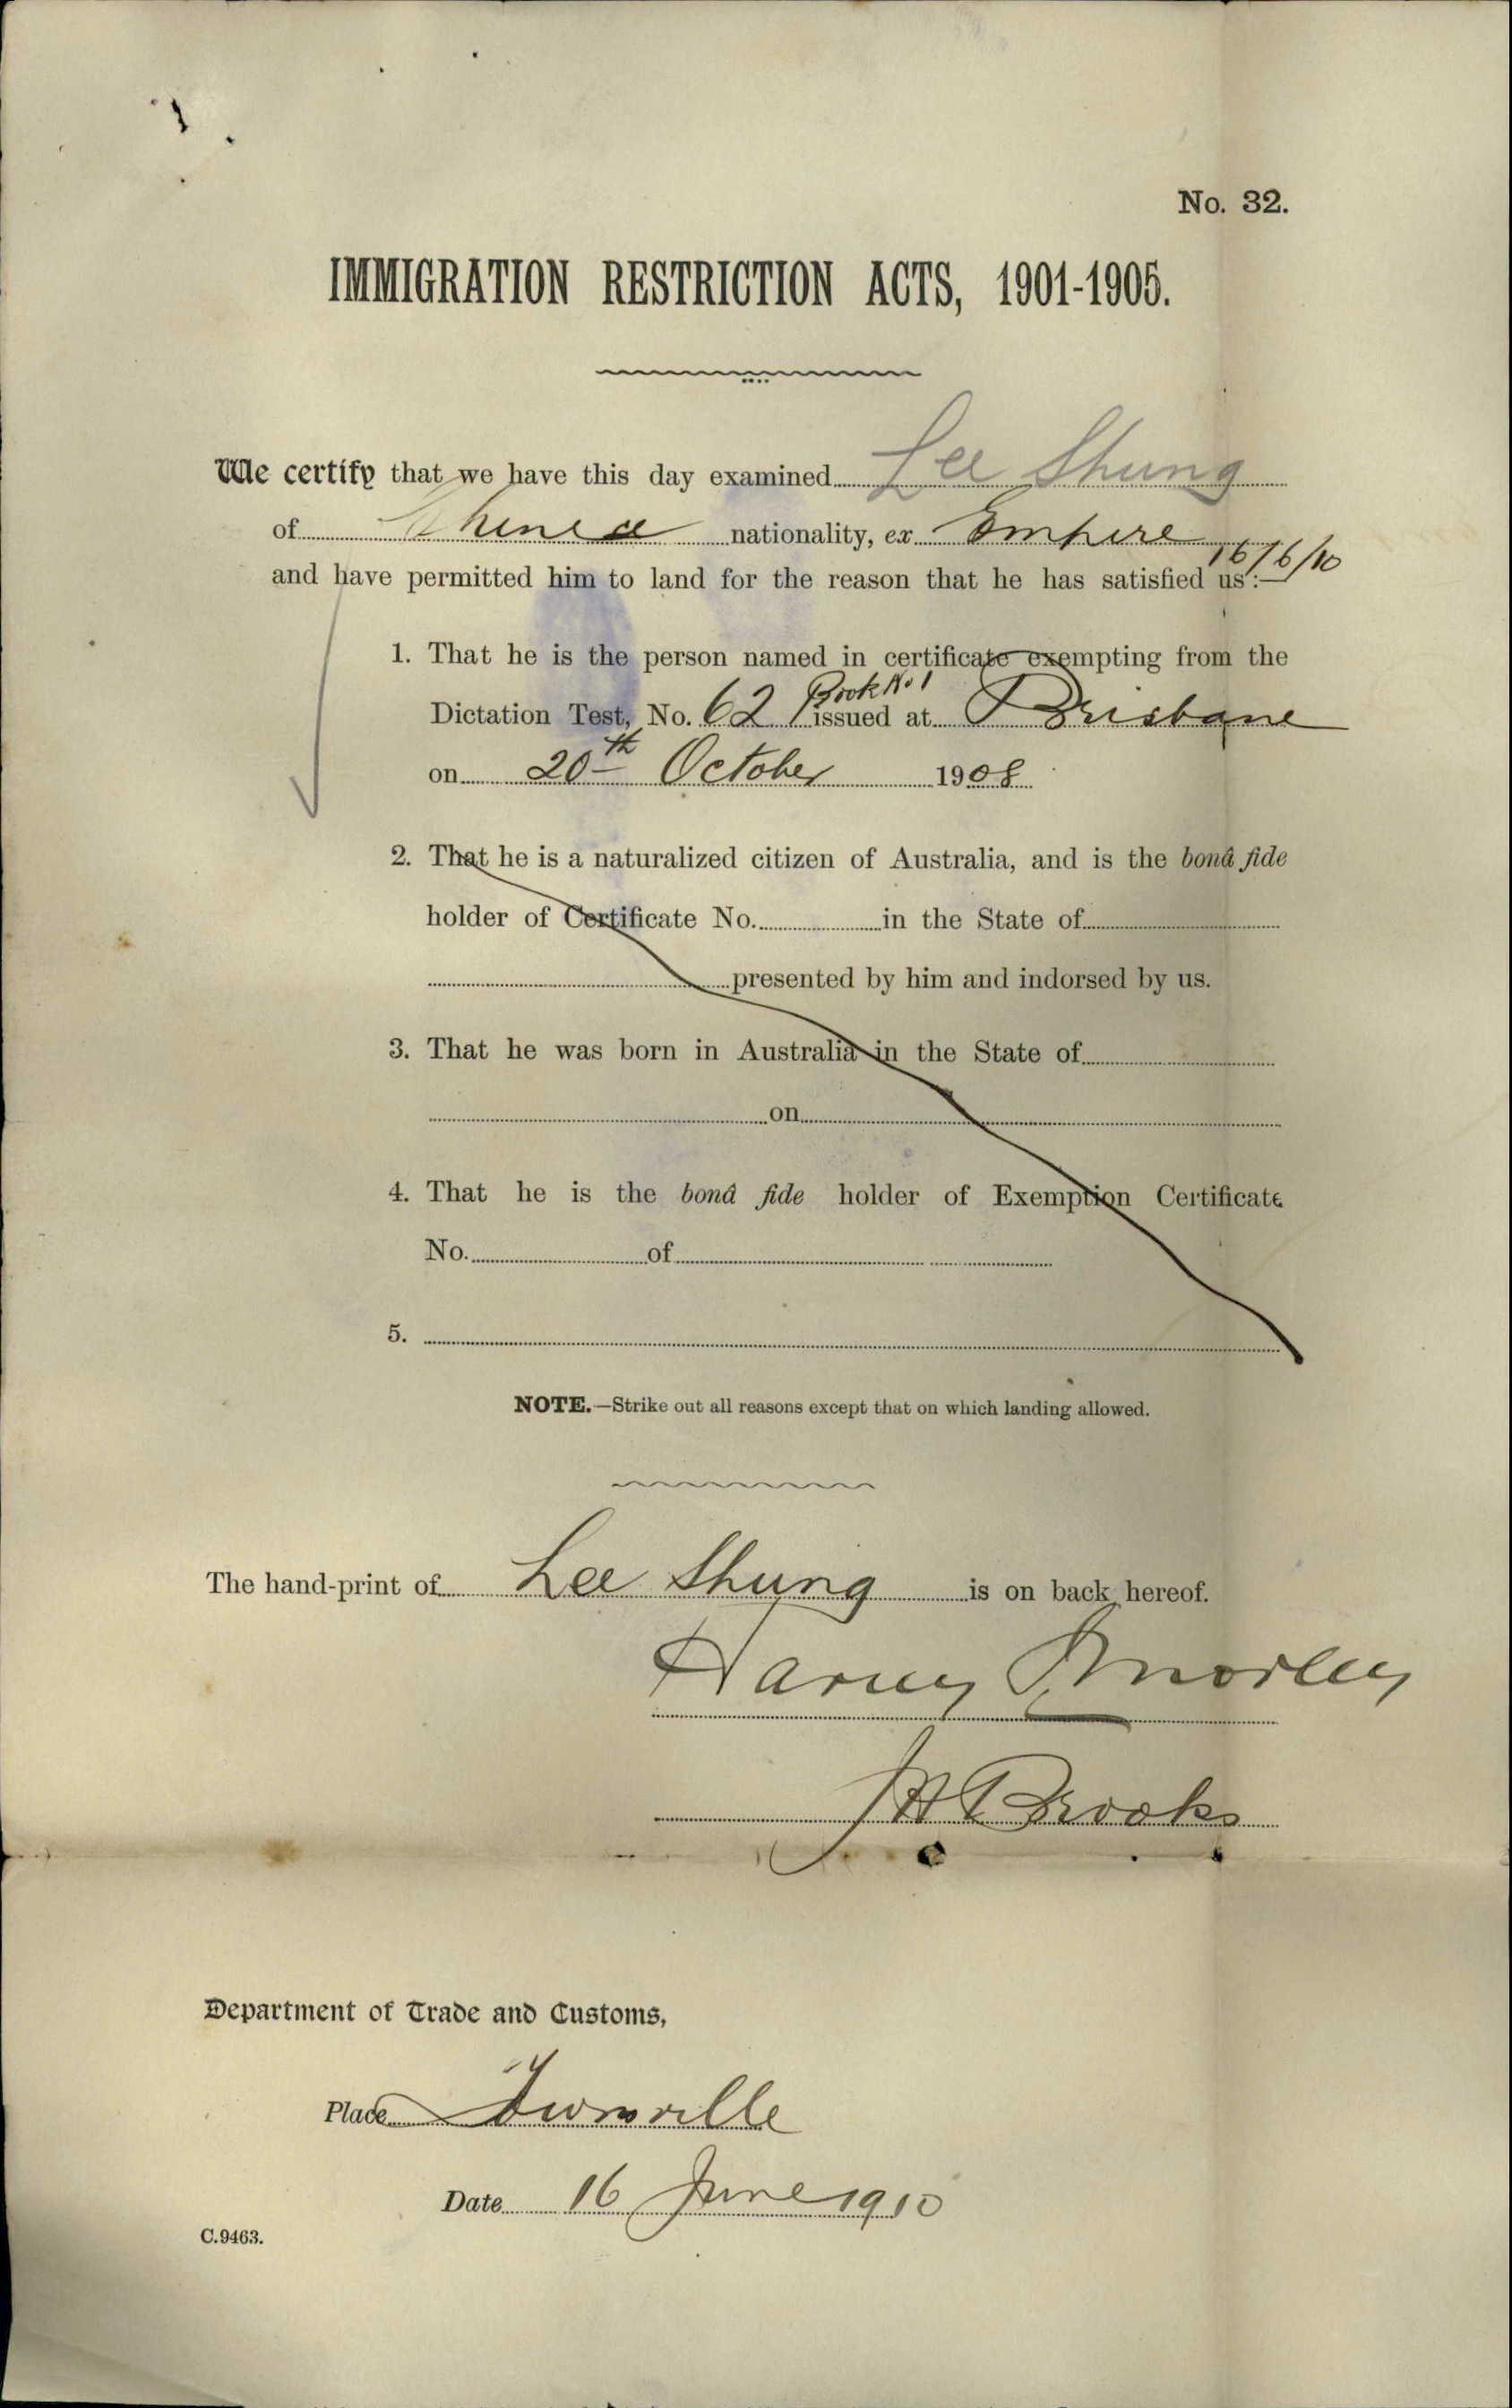 No. 32.
IMMIGRATION RESTRICTION ACTS, 1901-1905.
We certify that we have this day examined Lee Shung
of Chinese nationality, ex Empire 16/6/10
and have permitted him to land for the reason that he has satisfied us:—
1. That he is the person named in certificate exempting from the
Book No 1
Dictation Test, No. 62 issued at Brisbane
on 20th October 1908
2. That he is a naturalized citizen of Australia, and is the bonâ fide
holder of Certificate No. in the State of
presented by him and indorsed by us.
3. That he was born in Australia in the State of
on
4. That he is the bonâ fide holder of Exemption Certificate
No. of
5.
NOTE.—Strike out all reasons except that on which landing allowed.
The hand-print of Lee Shung is on back hereof.
Harvey Morley
JH Brooks
Department of Trade and Customs,
Place Townsville
Date 16 June 1910
C.9463.